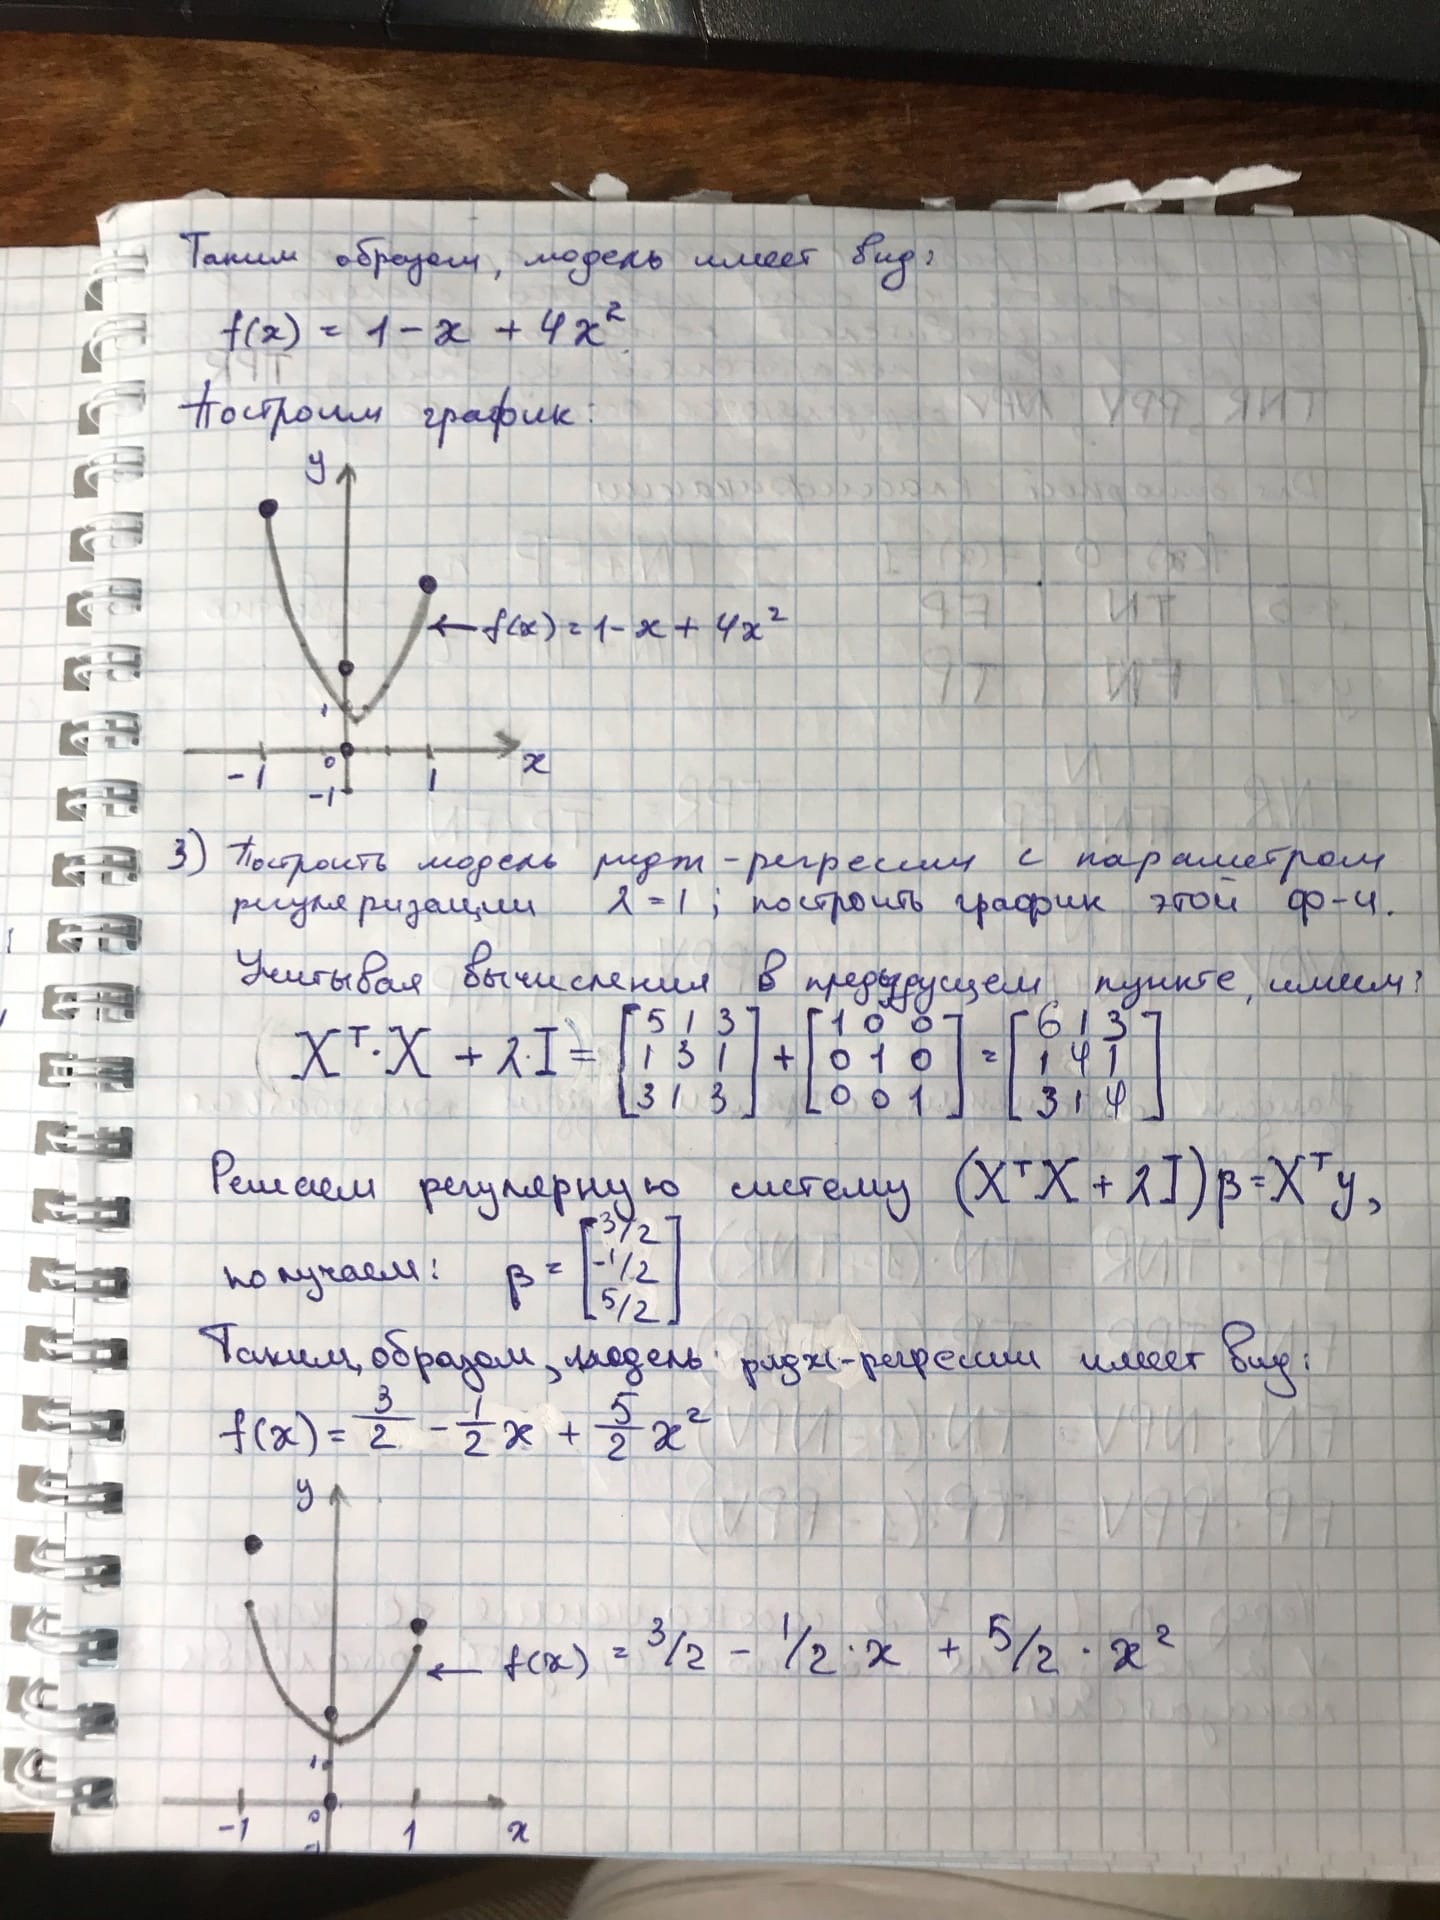 Таким образом, модель имеет вид:
f(x) = 1 - x + 4x²
Построим график:
y
← f(x) = 1 - x + 4x²
1
-1 0 1 x
-1
3) Построить модель ридж-регрессии с параметром
регуляризации λ = 1; построить график этой ф-и.
Учитывая вычисления в предыдущем пункте, имеем:
Xᵀ·X + λ·I = [5 1 3; 1 3 1; 3 1 3] + [1 0 0; 0 1 0; 0 0 1] = [6 1 3; 1 4 1; 3 1 4]
Решаем регулярную систему (XᵀX + λI)β = Xᵀy,
получаем: β = [3/2; -1/2; 5/2]
Таким образом, модель ридж-регрессии имеет вид:
f(x) = 3/2 - 1/2 x + 5/2 x²
y
← f(x) = 3/2 - 1/2 · x + 5/2 · x²
1
-1 0 1 x
-1